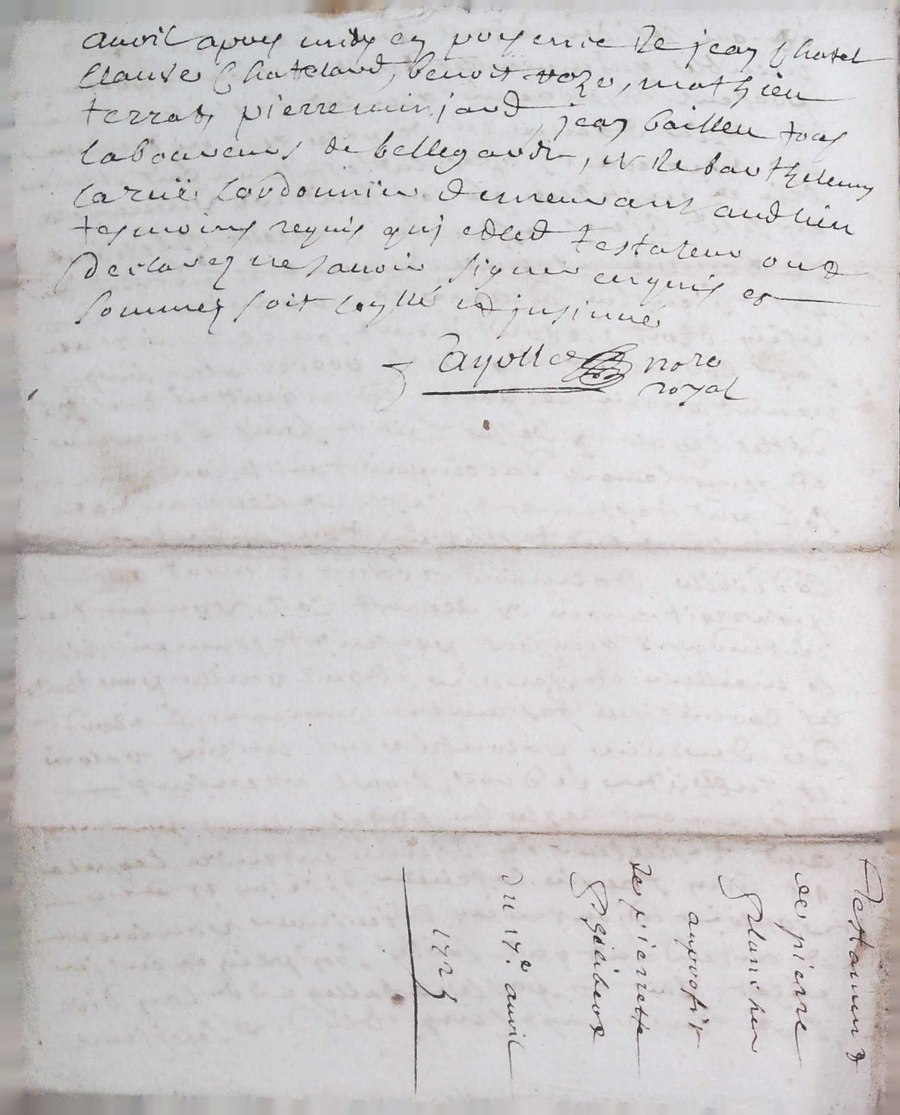 avril apres midy en presence de jean Chatel
Claude Chatelard, benoit roze, mathieu
terrat, pierre minjard, jean baillen tous
laboureurs de bellegarde, et de barthelemy
laruë Cordonnier demeurant audlieu
tesmoins requis qui et led testateur ont
declarez ne savoir signer enquis et
sommez soit collé et insinué
fayolle nore
royal
testament
de pierre
planchen
auprofit
de pierrette
du 17e. avril
1725